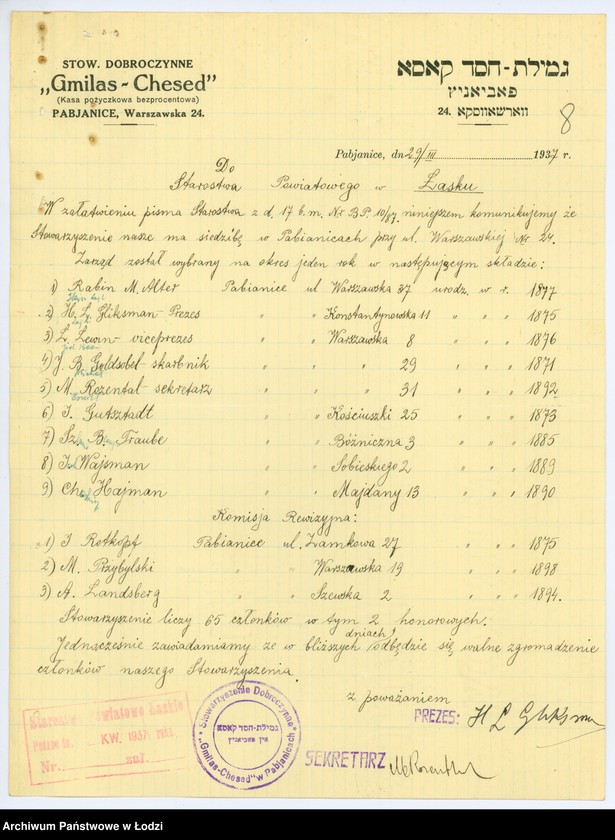 STOW. DOBROCZYNNE
„Gmilas-Chesed"
(Kasa pożyczkowa bezprocentowa)
PABJANICE, Warszawska 24.
גמילת-חסד קאסא
פאביאניץ
ווארשאווסקא 24.
8
Pabjanice, dn 29/III 1937 r.
Do
Starostwa Powiatowego w Łasku
W załatwieniu pisma Starostwa z d. 17 b.m. Nr B.P. 10/87 niniejszem komunikujemy że
Stowarzyszenie nasze ma siedzibę w Pabianicach przy ul. Warszawskiej Nr 24.
Zarząd został wybrany na okres jeden rok w następującym składzie:
1) Rabin M. Alter Pabianice ul Warszawska 37 urodz. w r. 1877
2) H. L. Gliksman - Prezes " " Konstantynowska 11 " " " 1875
3) L. Lewin - viceprezes " " Warszawska 8 " " " 1876
4) J. B. Goldsobel - skarbnik " " " 29 " " " 1871
5) M. Rozental sekretarz " " " 31 " " " 1892
6) I. Gutsztadt " " Kościuszki 25 " " " 1873
7) Sz. B. Traube " " Bóżniczna 3 " " " 1885
8) I. Wajsman " " Sobieskiego 2 " " " 1889
9) Ch. Hajman " " Majdany 13 " " " 1890
Komisja Rewizyjna:
1) I Rotkopf Pabianice ul. Zamkowa 27 " " " 1875
2) M. Przybylski " " Warszawska 19 " " " 1898
3) A. Landsberg " " Szewska 2 " " " 1894.
Stowarzyszenie liczy 65 członków w tym 2 honorowych.
Jednocześnie zawiadamiamy ze w bliższych dniach odbędzie się walne zgromadzenie
członków naszego Stowarzyszenia.
z poważaniem
PREZES: H L Gliksman
SEKRETARZ M Rosenthal
Starostwo Powiatowe Łaskie
KW. 1937
Nr. zał.
Stowarzyszenie Dobroczynne
"Gmilas-Chesed" w Pabjanicach
גמילת-חסד קאסא
אין פאביאניץ
Archiwum Państwowe w Łodzi